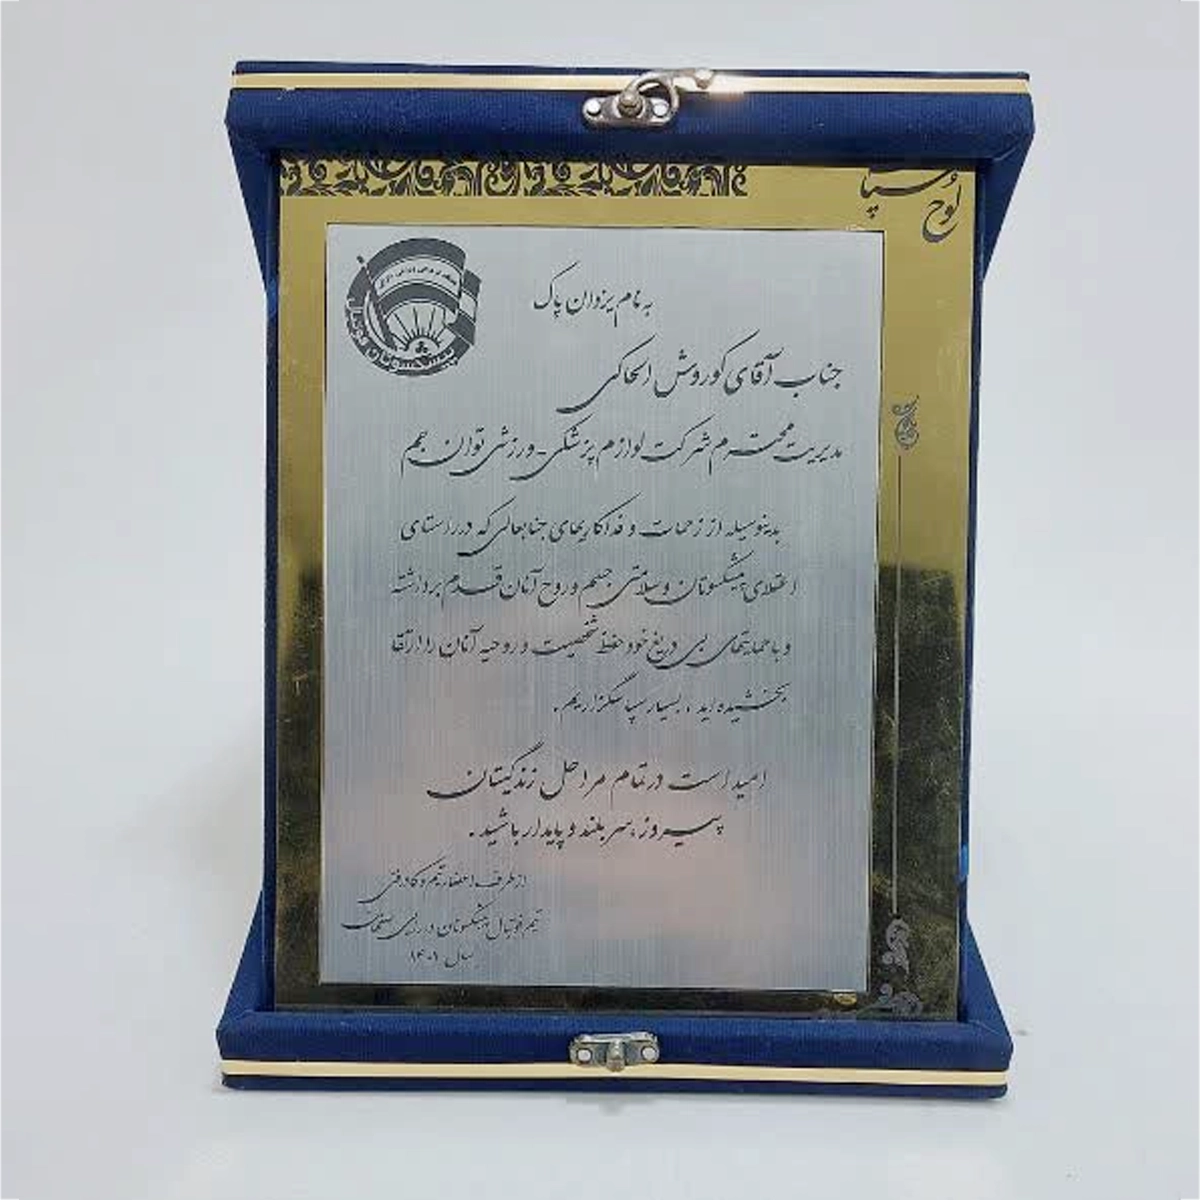 لوح سپاس
به نام یزدان پاک
جناب آقای کوروش الحاکی
مدیریت محترم شرکت لوازم پزشکی-ورزشی توان جم
بدینوسیله از زحمات و فداکاریهای جنابعالی که در راستای
اعتلای پیشکسوتان و سلامتی جسم و روح آنان قدم برداشته
و با حمایتهای بی دریغ خود حفظ شخصیت و روحیه آنان را ارتقا
بخشیده اید ، بسیار سپاسگزاریم .
امید است در تمام مراحل زندگیتان
پیروز ، سربلند و پایدار باشید .
از طرف اعضاء تیم و کادر فنی
تیم فوتبال پیشکسوتان دریای صلابت
سال ۱۴۰۱